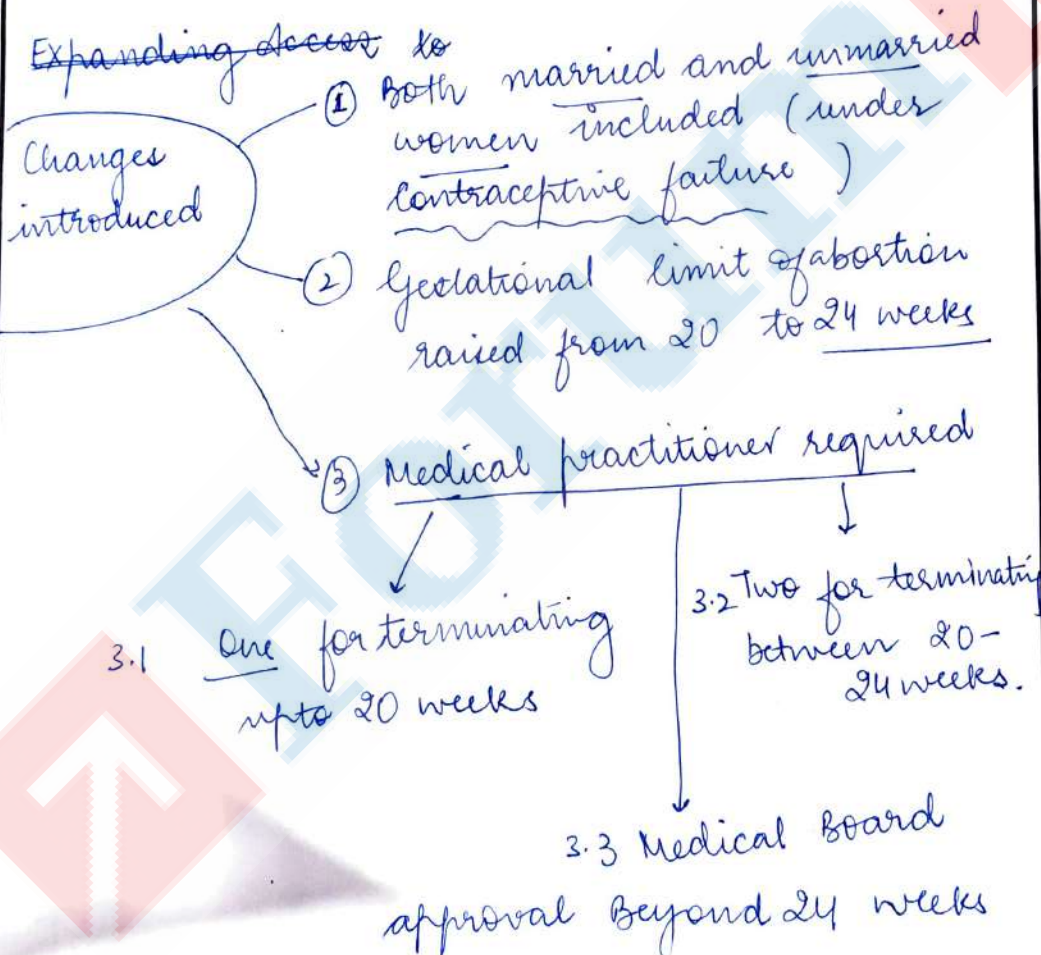 Expanding access to
① Both married and unmarried
women included (under
contraceptive failure)
Changes
introduced
② Gestational limit of abortion
raised from 20 to 24 weeks
③ Medical practitioner required
3.1 One for terminating
upto 20 weeks
3.2 Two for terminating
between 20-
24 weeks.
3.3 Medical Board
approval Beyond 24 weeks
Forum